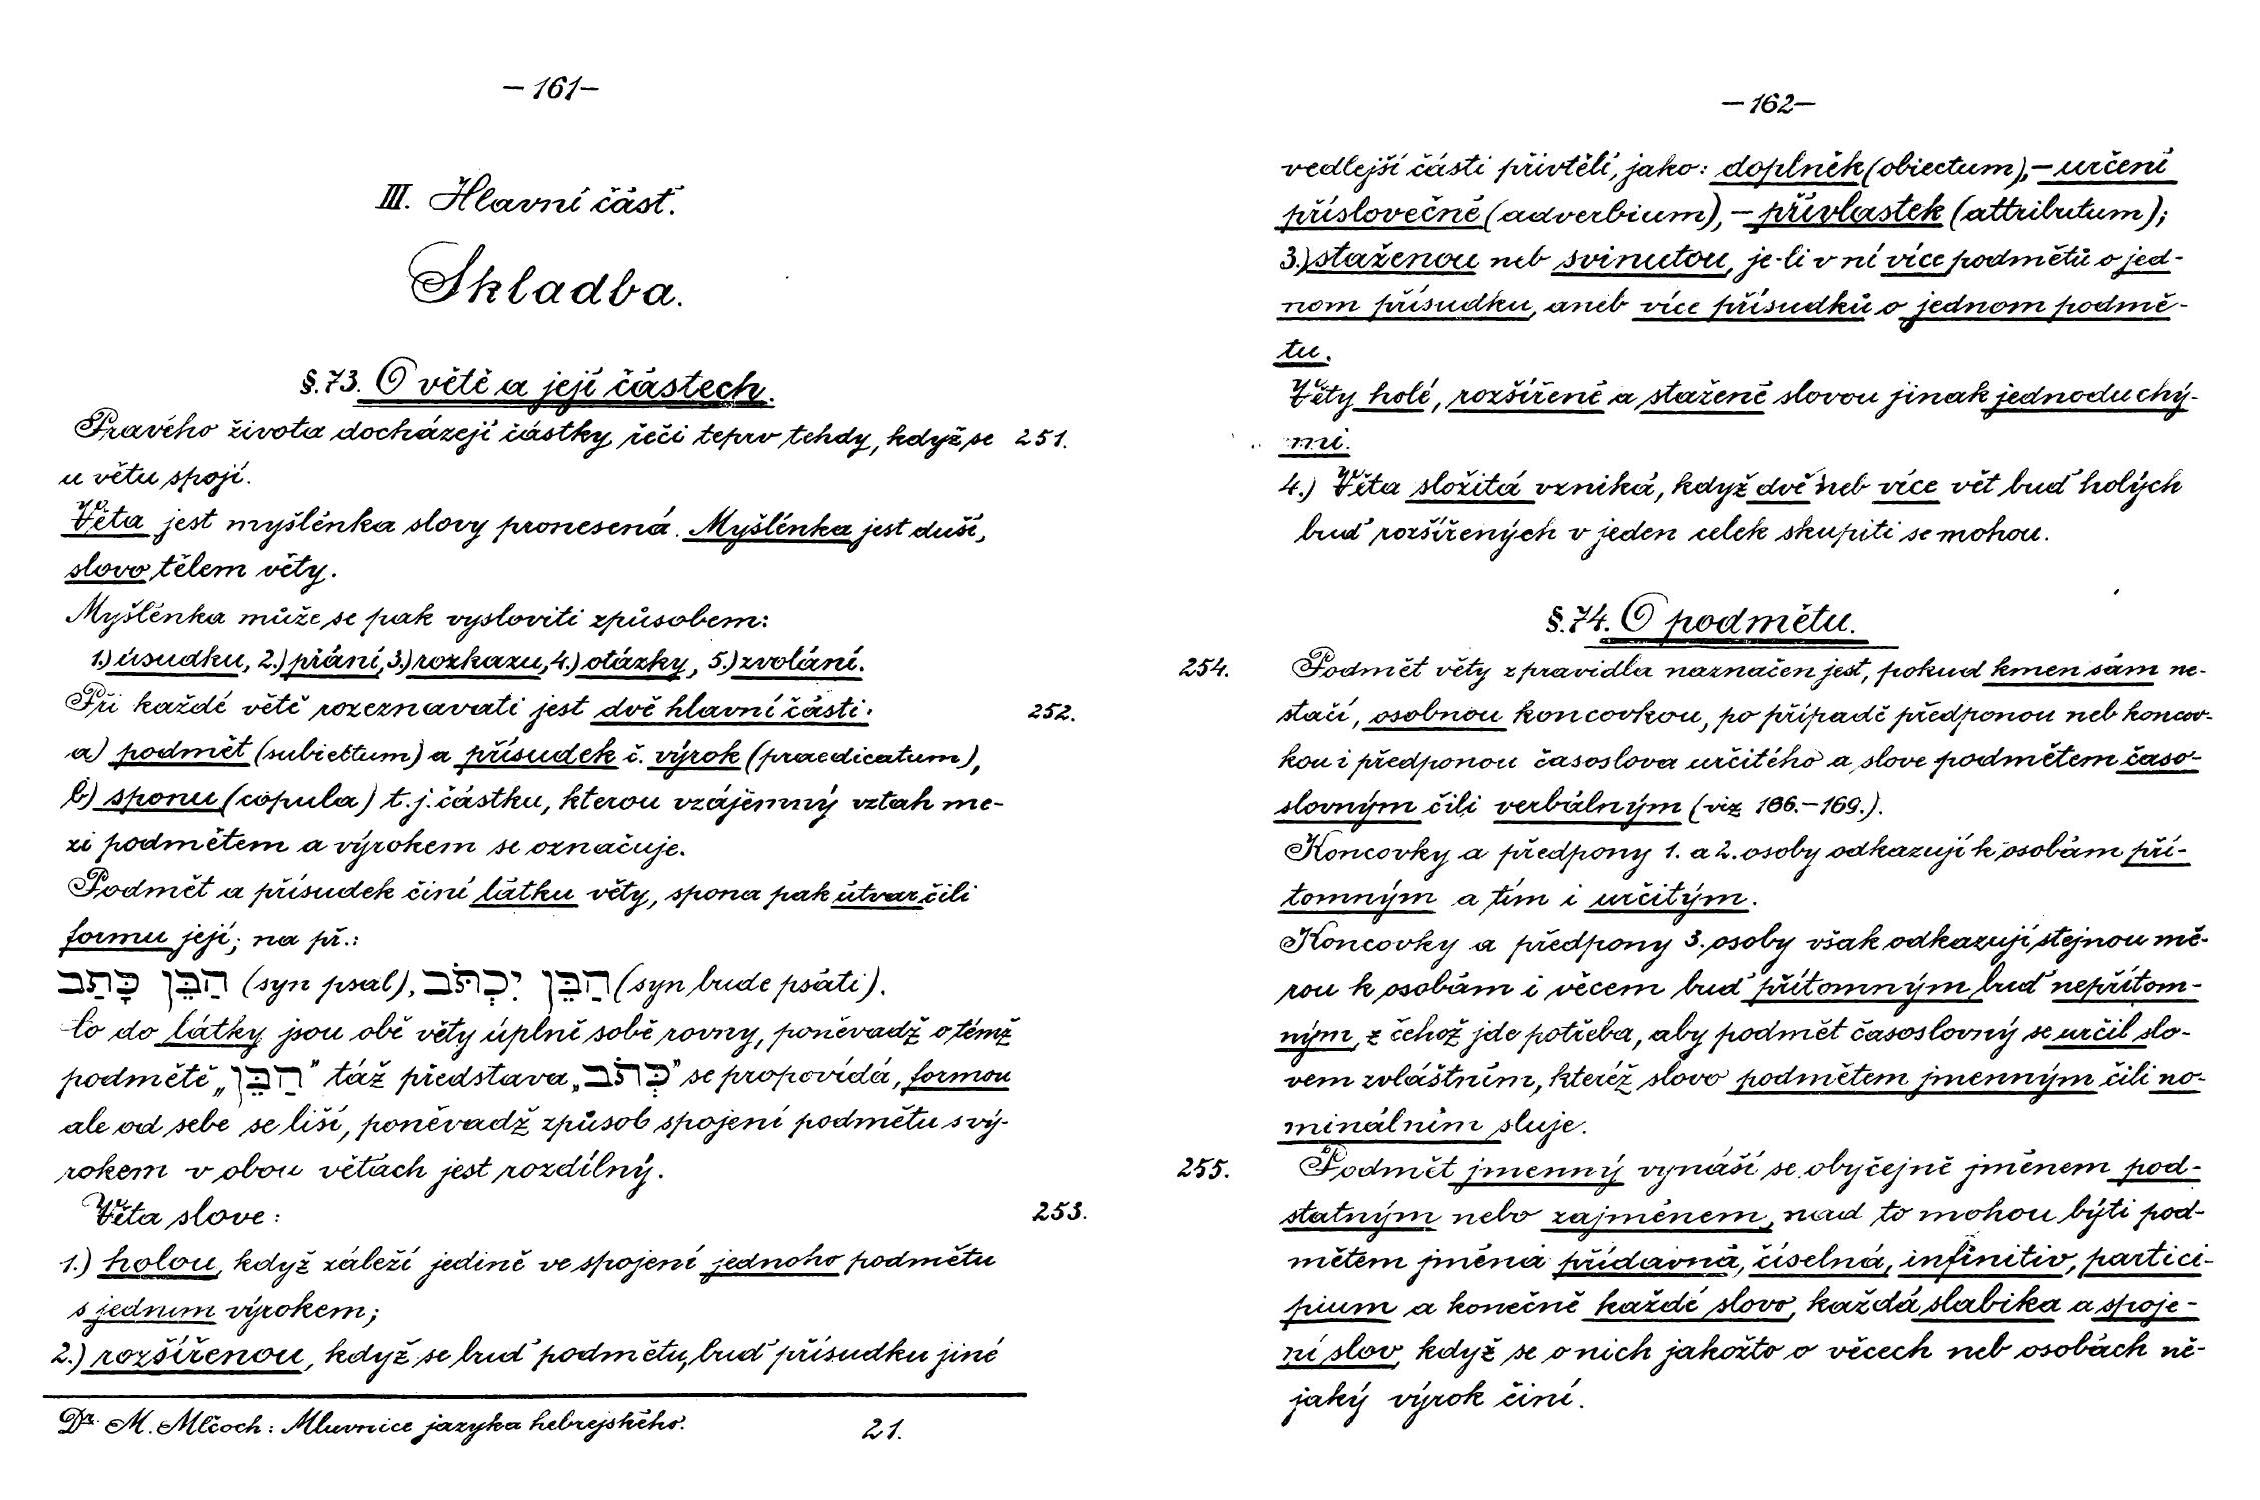 — 161 —
III. Hlavní část.
Skladba.
§. 73. O větě a její částech.
Pravého života docházejí částky řeči teprv tehdy, když se 251.
u větu spojí.
Věta jest myšlénka slovy pronesená. Myšlénka jest duší,
slovo tělem věty.
Myšlénka může se pak vysloviti způsobem:
1.) úsudku, 2.) přání, 3.) rozkazu, 4.) otázky, 5.) zvolání.
Při každé větě rozeznavati jest dvě hlavní části: 252.
a) podmět (subiectum) a přísudek č. výrok (praedicatum),
b) sponu (copula) t. j. částku, kterou vzájemný vztah me-
zi podmětem a výrokem se označuje.
Podmět a přísudek činí látku věty, spona pak útvar čili
formu její; na př.:
הַבֵּן כָּתַב (syn psal), הַבֵּן יִכְתֹּב (syn bude psáti).
Co do látky jsou obě věty úplně sobě rovny, poněvadž o témž
podmětě „הַבֵּן” táž představa „כְּתֹב” se propovídá, formou
ale od sebe se liší, poněvadž způsob spojení podmětu s vý-
rokem v obou větách jest rozdílný.
Věta slove: 253.
1.) holou, když záleží jedině ve spojení jednoho podmětu
s jedním výrokem;
2.) rozšířenou, když se buď podmětu, buď přísudku jiné
Dr. M. Mlčoch: Mluvnice jazyka hebrejského. 21.
— 162 —
vedlejší části přivtělí, jako: doplněk (obiectum), — určení
příslovečné (adverbium), — přívlastek (attributum);
3.) staženou neb svinutou, je-li v ní více podmětů o jed-
nom přísudku, aneb více přísudků o jednom podmě-
tu.
Věty holé, rozšířené a stažené slovou jinak jednoduchý-
mi.
4.) Věta složitá vzniká, když dvě neb více vět buď holých
buď rozšířených v jeden celek skupiti se mohou.
§. 74. O podmětu.
254. Podmět věty zpravidla naznačen jest, pokud kmen sám ne-
stačí, osobnou koncovkou, po případě předponou neb koncov-
kou i předponou časoslova určitého a slove podmětem časo-
slovným čili verbálným (viz 166.–169.).
Koncovky a předpony 1. a 2. osoby odkazují k osobám pří-
tomným a tím i určitým.
Koncovky a předpony 3. osoby však odkazují stejnou mě-
rou k osobám i věcem buď přítomným buď nepřítom-
ným, z čehož jde potřeba, aby podmět časoslovný se určil slo-
vem zvláštním, kteréž slovo podmětem jmenným čili no-
minálním sluje.
255. Podmět jmenný vynáší se obyčejně jménem pod-
statným nebo zajménem, nad to mohou býti pod-
mětem jména přídavná, číselná, infinitiv, partici-
pium a konečně každé slovo, každá slabika a spoje-
ní slov, když se o nich jakožto o věcech neb osobách ně-
jaký výrok činí.